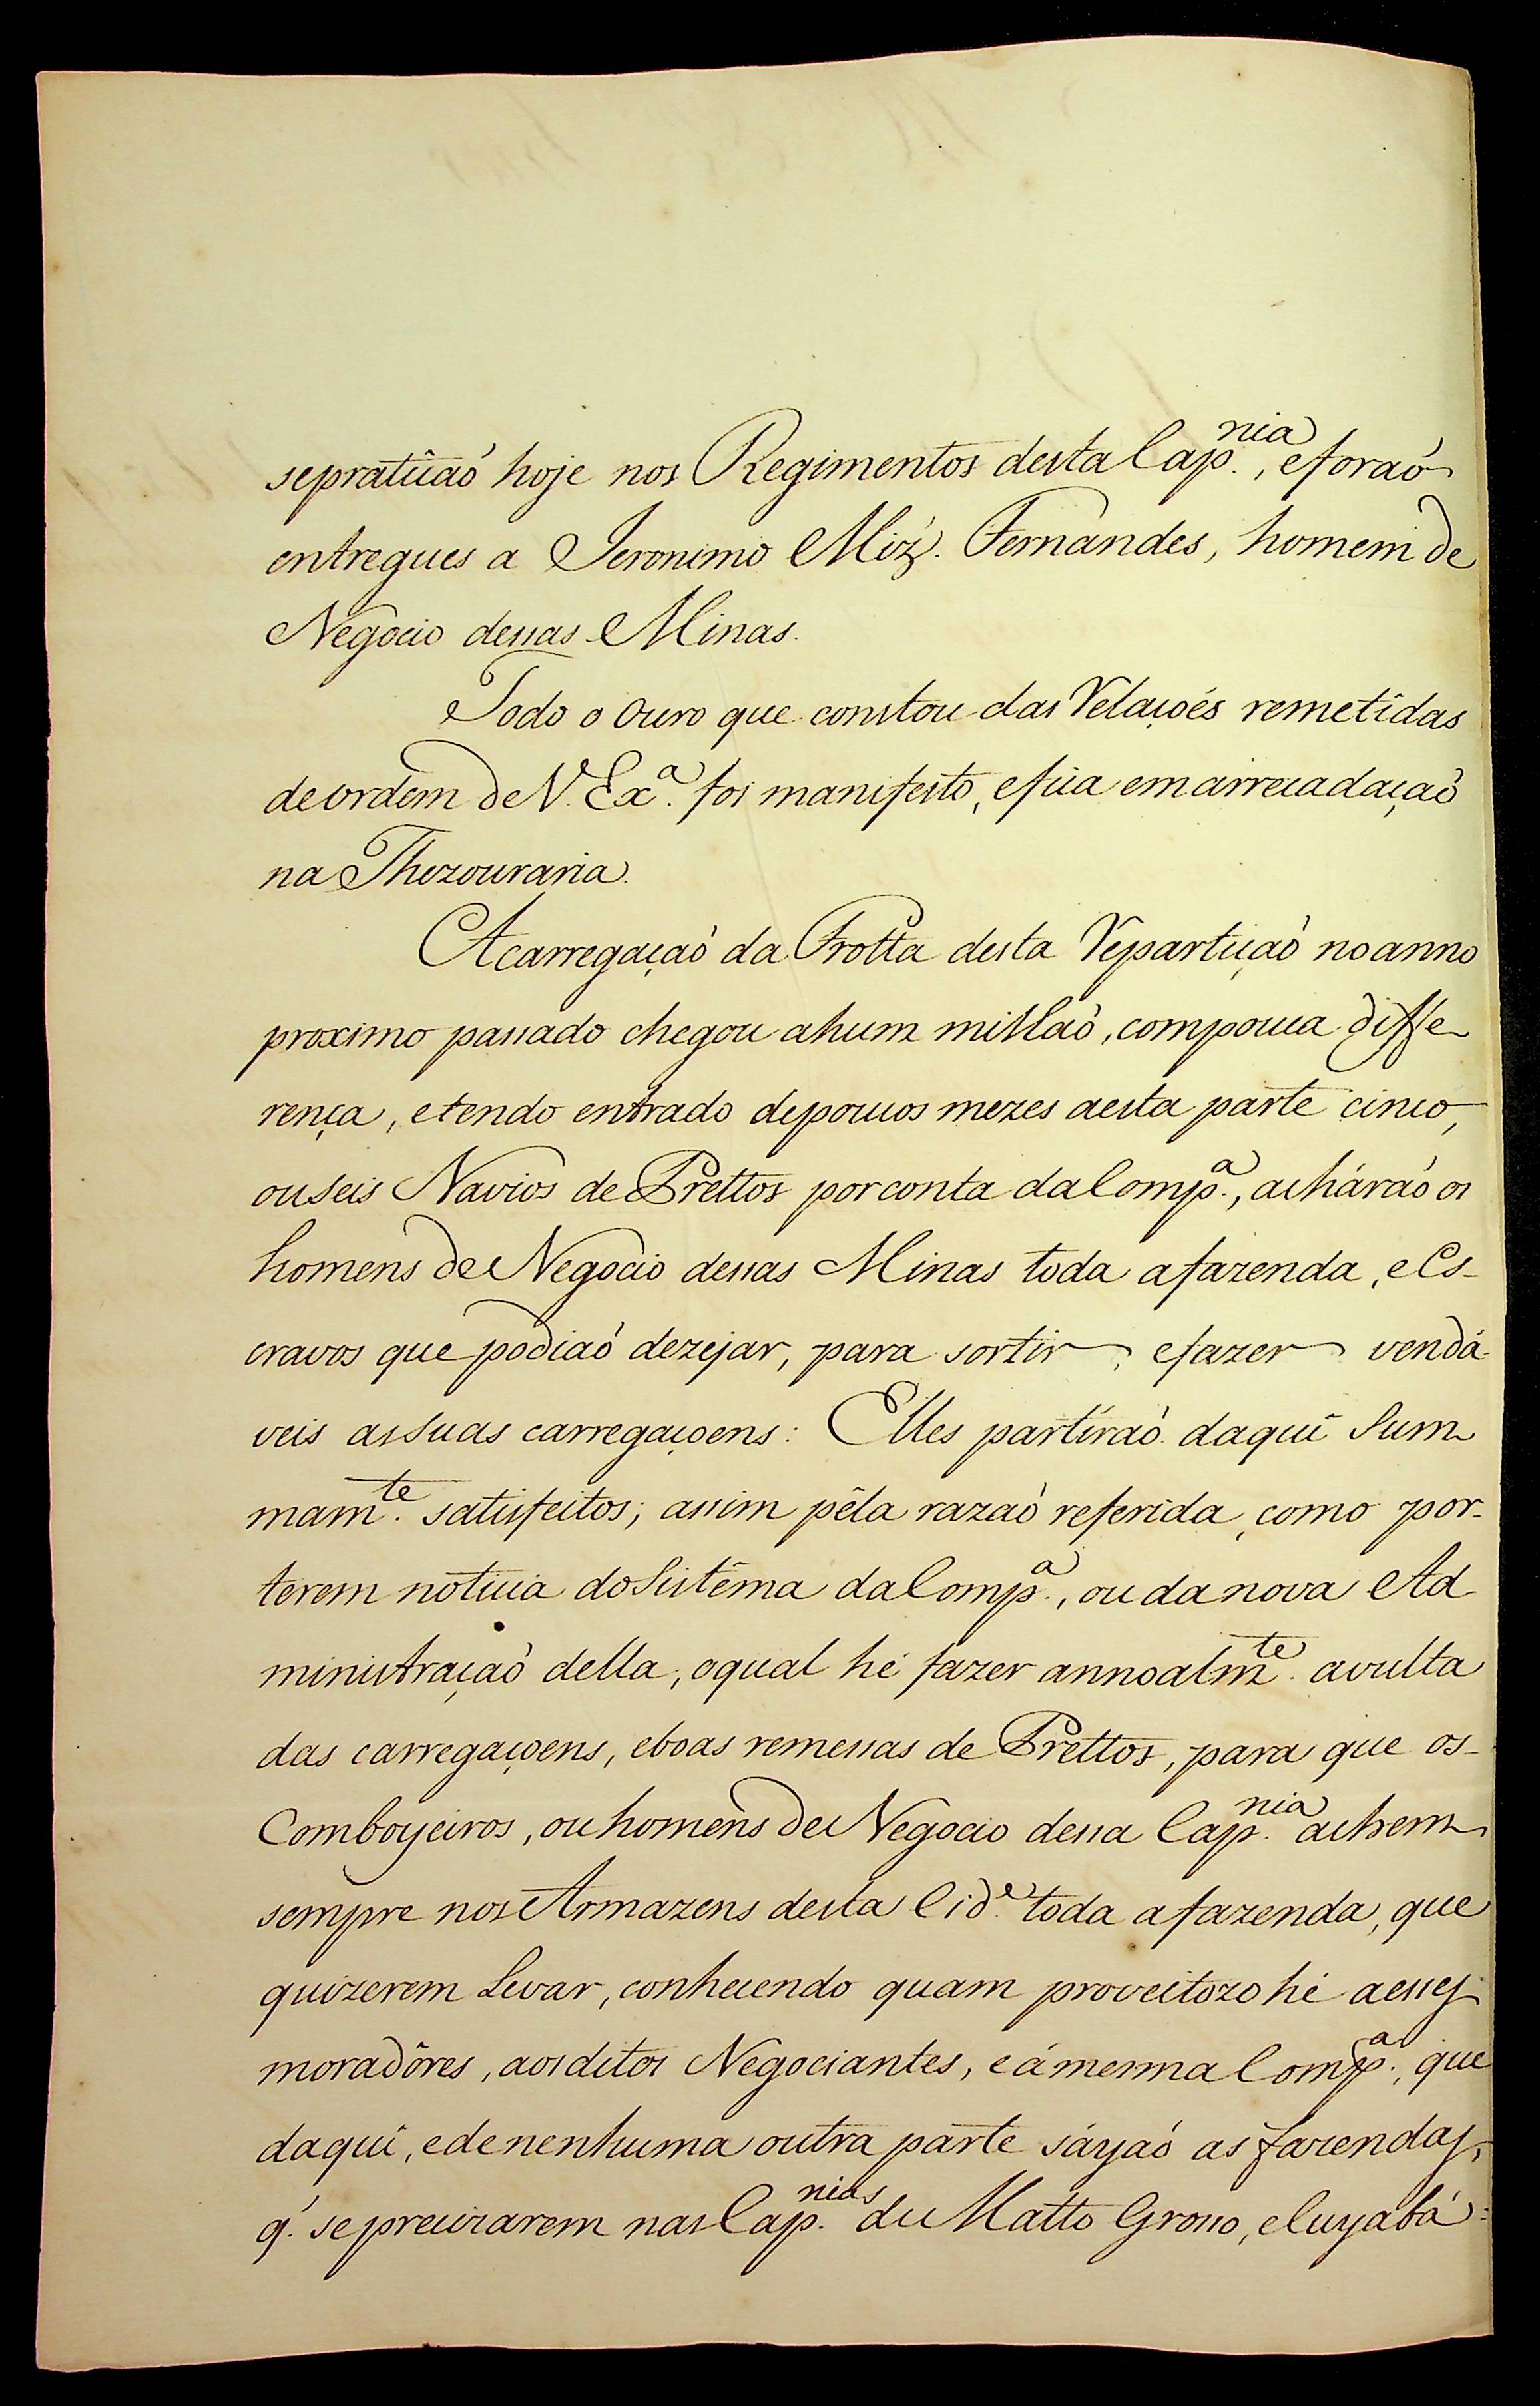 sepratîcaó hoje nos Regimentos desta Cap.nia, eforaó
entregues a Jeronimo Miz̃. Fernandes, homem de
Negocio dessas Minas.
Todo o Ouro que constou das Relaçoẽs remetidas
deordem de V. Ex.ª foi manifesto, efica emarrecadaçaò
na Thezouraria.
Acarregaçaò da Frotta desta Repartiçaò noanno
proximo passado chegou ahum milhaò, compouca diffe
rença, etendo entrado depoucos mezes aesta parte cinco,
ouseis Navios de Prettos porconta daComp.ª, acháraó os
homens de Negocio dessas Minas toda afazenda, eEs-
cravos que podiaó dezejar, para sortir, efazer vendá-
veis assuas carregaçoens: Elles partiraò daqui Sum
mam.te satisfeitos; assim pêla razaò referida, como por-
terem noticia doSistêma daComp.ª, oudanova Ad
ministraçaò della, oqual hé fazer annoalm.te avulta
das carregaçoens, eboas remessas de Prettos, para que os-
Comboyeiros, ouhomens de Negocio dessa Cap.nia achem
sempre nos Armazens desta Cid.e toda afazenda, que
quizerem Levar, conhecendo quam proveitozo hé aesses
moradôres, aosditos Negociantes, eámesma Comp.ª, que
daqui, edenenhuma outra parte sáyaó as fazendas,
q̃. seprecizarem nasCap.nias du Matto Grosso, eCuyabá: